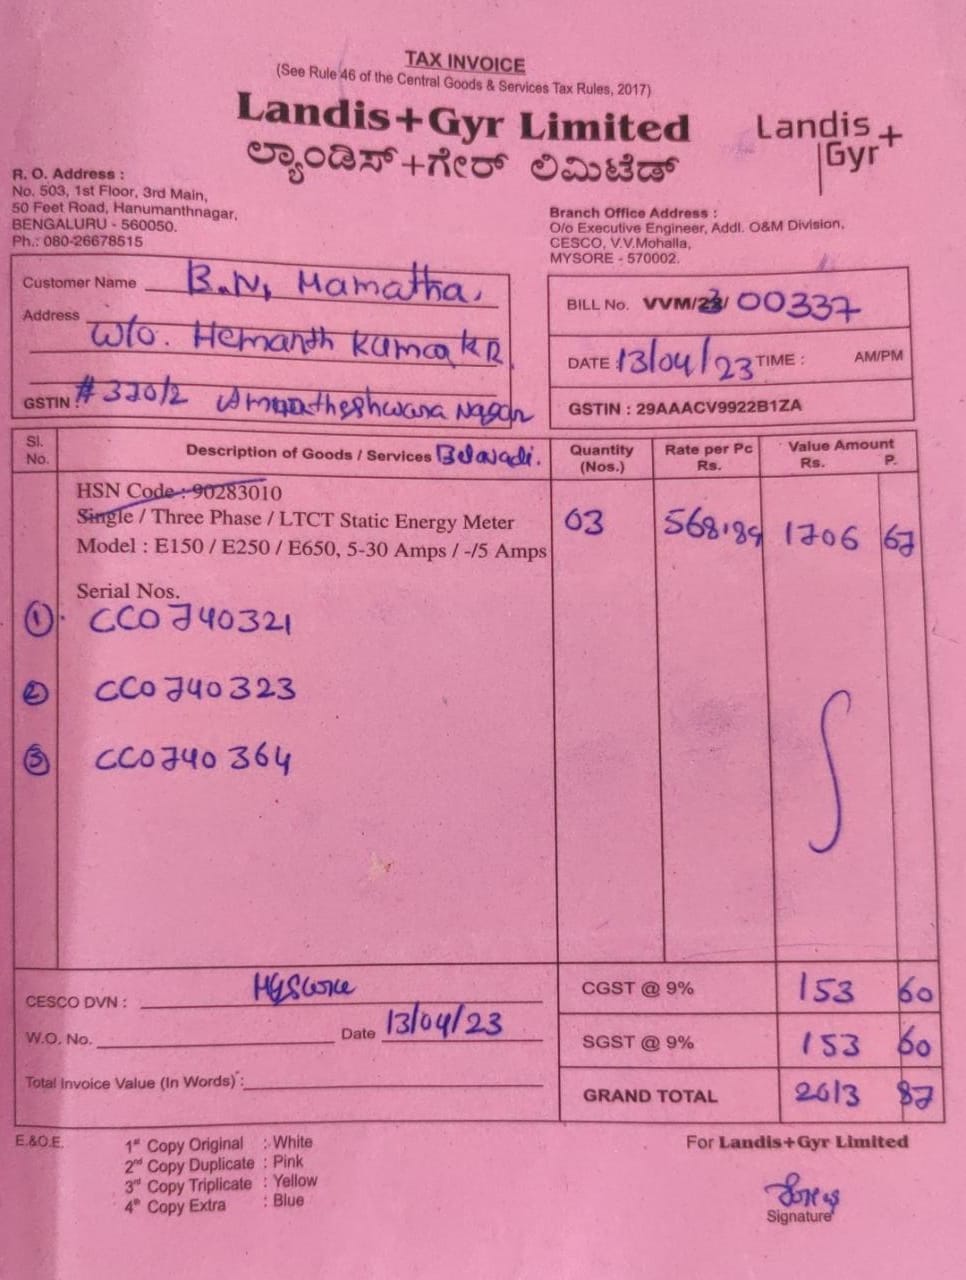 TAX INVOICE
(See Rule 46 of the Central Goods & Services Tax Rules, 2017)
Landis+Gyr Limited
ಲ್ಯಾಂಡಿಸ್+ಗೇರ್ ಲಿಮಿಟೆಡ್
Landis+
Gyr
R. O. Address :
No. 503, 1st Floor, 3rd Main,
50 Feet Road, Hanumanthnagar,
BENGALURU - 560050.
Ph.: 080-26678515
Branch Office Address :
O/o Executive Engineer, Addl. O&M Division,
CESCO, V.V.Mohalla,
MYSORE - 570002.
Customer Name B.N. Mamatha,
Address W/o. Hemanth Kumar K R
GSTIN : #320/2 Nagar
Belavadi.
BILL No. VVM/23/ 00337
DATE 13/04/23 TIME : AM/PM
GSTIN : 29AAACV9922B1ZA
Sl. No. Description of Goods / Services Quantity (Nos.) Rate per Pc Rs. Value Amount Rs. P.
HSN Code : 90283010
Single / Three Phase / LTCT Static Energy Meter 03 568.89 1706 67
Model : E150 / E250 / E650, 5-30 Amps / -/5 Amps
Serial Nos.
1 CC0740321
2 CC0740323
3 CC0740364
CESCO DVN : Mysore
W.O. No. Date 13/04/23
Total Invoice Value (In Words) :
CGST @ 9% 153 60
SGST @ 9% 153 60
GRAND TOTAL 2013 87
E.&O.E.
1st Copy Original : White
2nd Copy Duplicate : Pink
3rd Copy Triplicate : Yellow
4th Copy Extra : Blue
For Landis+Gyr Limited
Signature